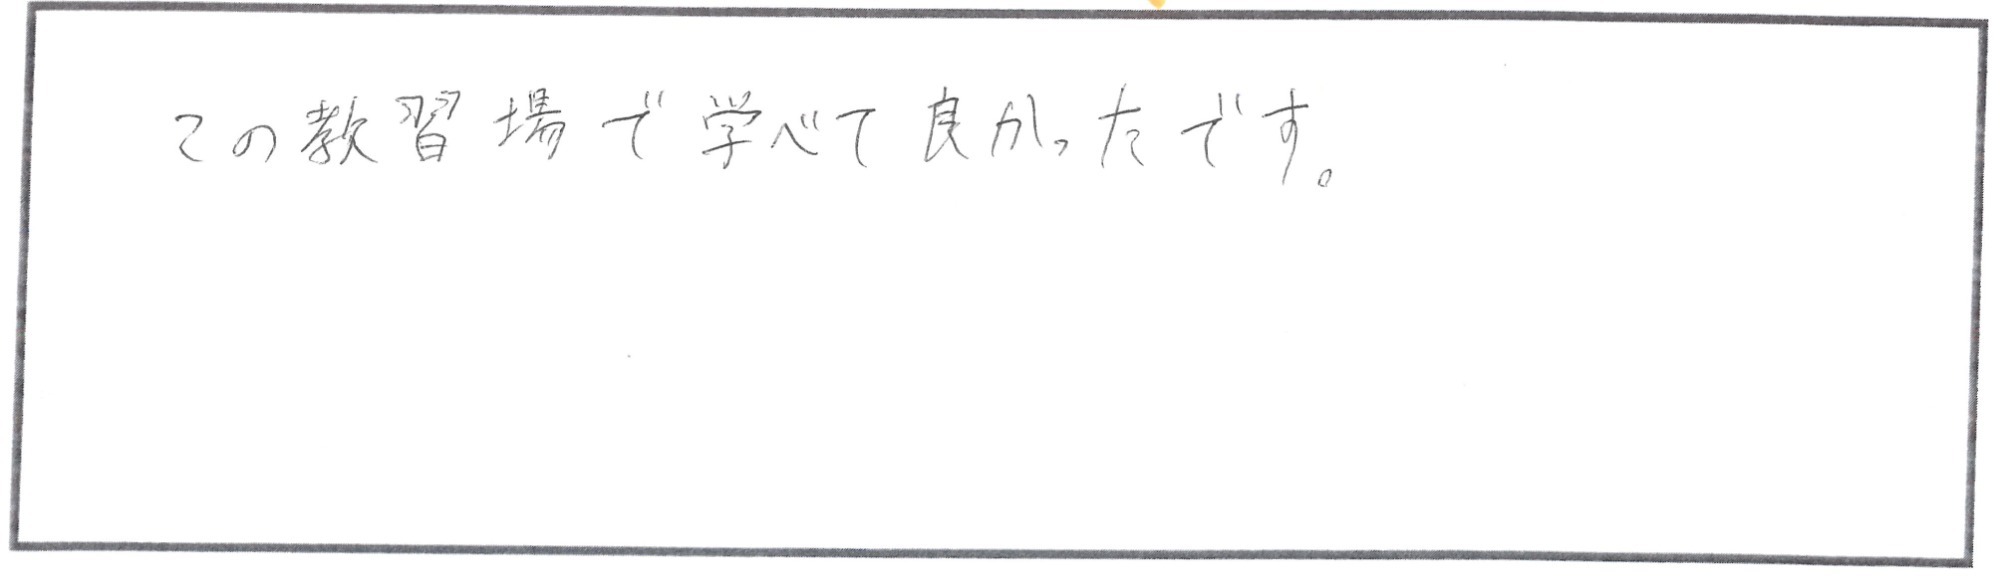 この教習場で学べて良かったです。